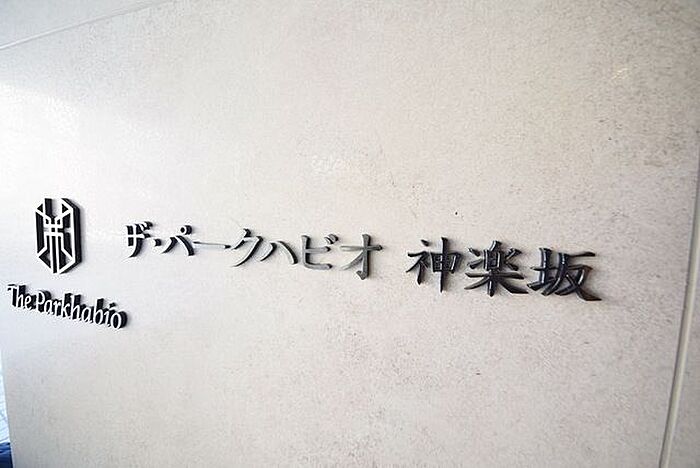 ザ・パークハビオ 神楽坂
The Parkhabio